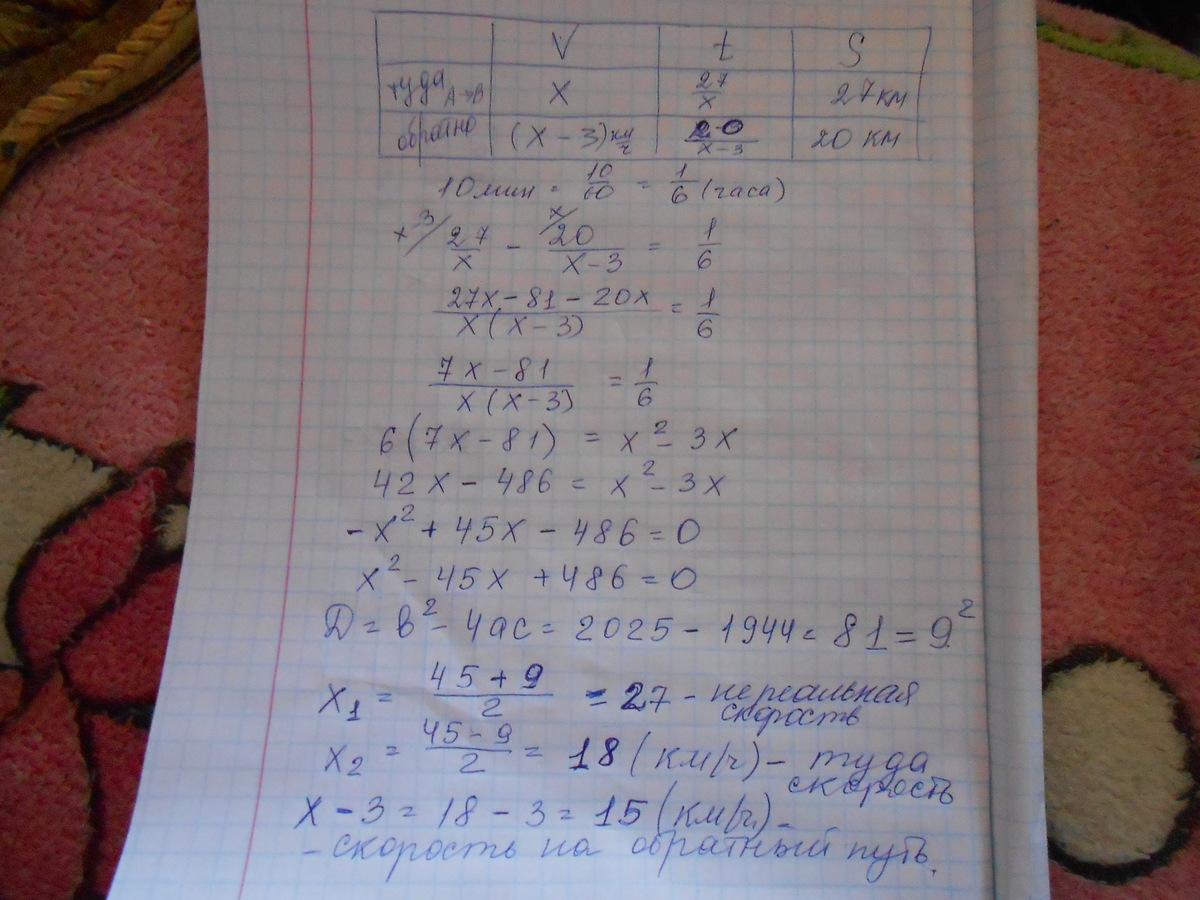 V t S
туда A→B x 27/x 27 км
обратно (x - 3) км/ч 20/x-3 20 км
10 мин = 10/60 = 1/6 (часа)
x-3/ 27/x - x/ 20/x-3 = 1/6
27x - 81 - 20x / x(x-3) = 1/6
7x - 81 / x(x-3) = 1/6
6(7x - 81) = x² - 3x
42x - 486 = x² - 3x
-x² + 45x - 486 = 0
x² - 45x + 486 = 0
D = b² - 4ac = 2025 - 1944 = 81 = 9²
x₁ = 45 + 9 / 2 = 27 - нереальная
скорость
x₂ = 45 - 9 / 2 = 18 (км/ч) - туда
скорость
x - 3 = 18 - 3 = 15 (км/ч) -
- скорость на обратный путь.